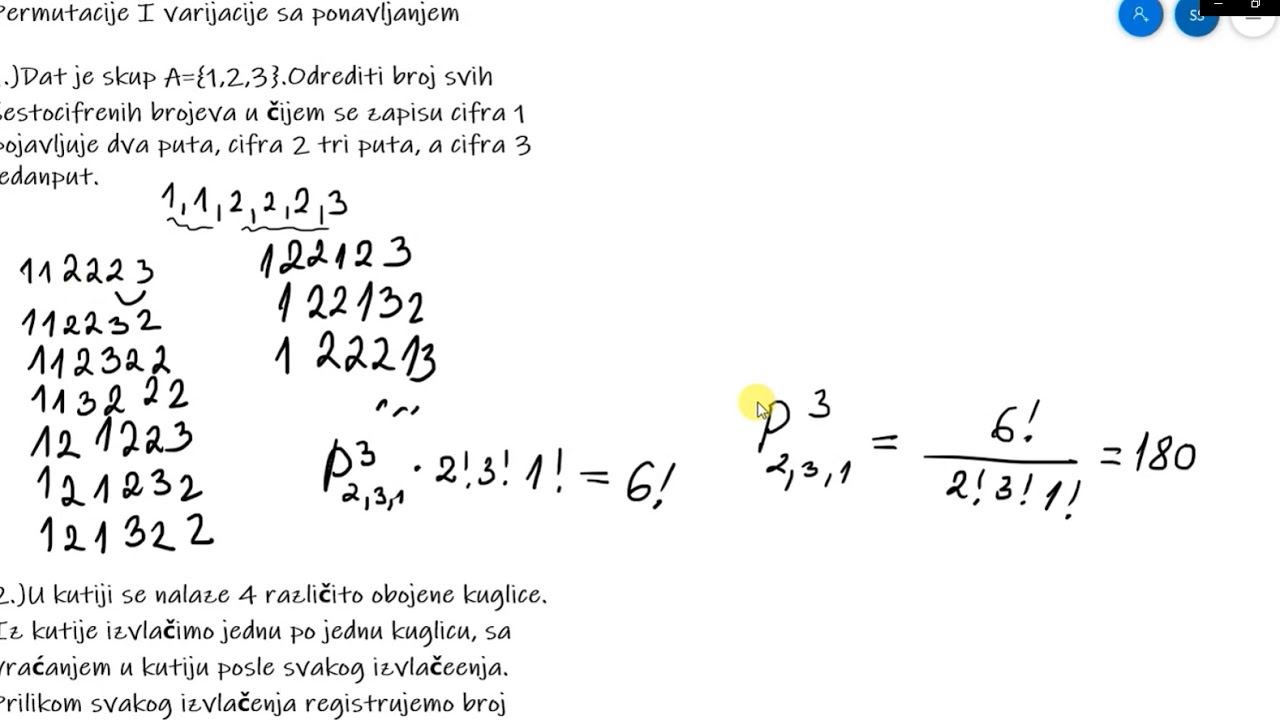 Permutacije I varijacije sa ponavljanjem
SS
.)Dat je skup A={1,2,3}.Odrediti broj svih
šestocifrenih brojeva u čijem se zapisu cifra 1
pojavljuje dva puta, cifra 2 tri puta, a cifra 3
jedanput.
1,1,2,2,2,3
112223
112232
112322
113222
121223
121232
121322
122123
122132
122213
...
P³₂,₃,₁ · 2!3!1! = 6!
P³₂,₃,₁ = 6! / 2!3!1! = 180
2.)U kutiji se nalaze 4 različito obojene kuglice.
Iz kutije izvlačimo jednu po jednu kuglicu, sa
vraćanjem u kutiju posle svakog izvlačeenja.
Prilikom svakog izvlačenja registrujemo broj